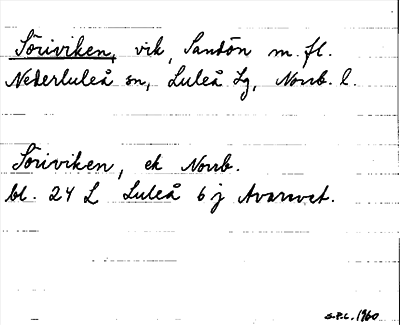 Söriviken, vik, Sandön m. fl.
Nederluleå sn, Luleå lg, Norrb. l.
Söriviken, ek Norrb.
bl. 24 L Luleå 6 j Avarvet.
S.P.L. 1960